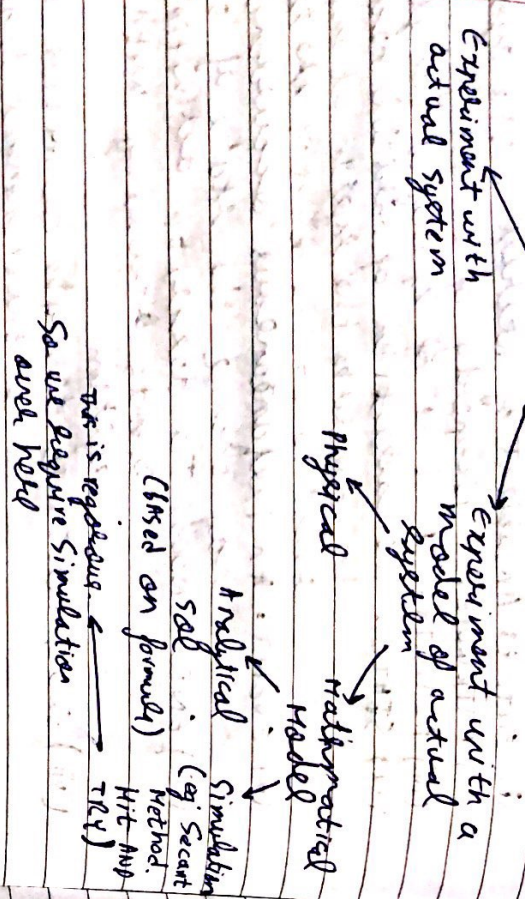 Experiment with
actual system
Experiment with a
model of actual
system
Physical
Mathmatical
Model
Analytical
sol
(based on formula)
Simulation
(eg Secant
Method.
Hit AND
TRY)
This is regorous
So we require Simulation
over here